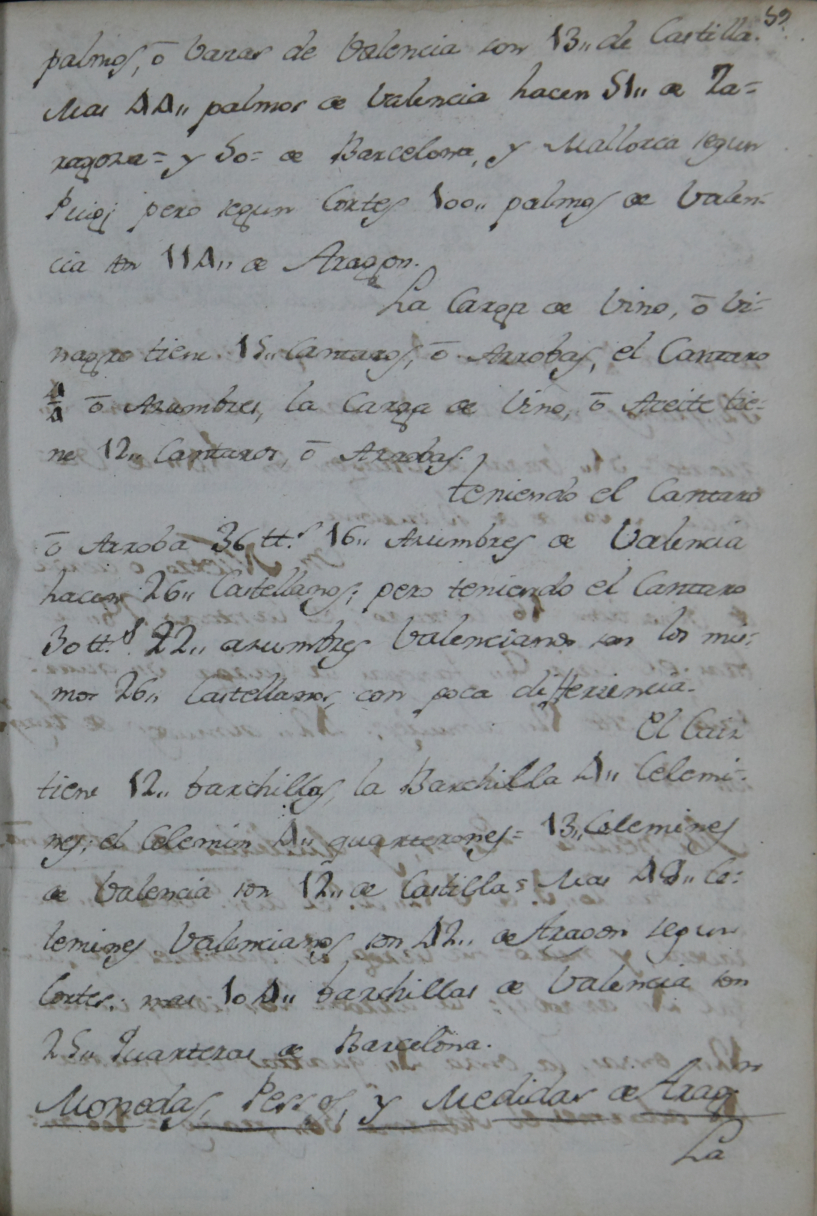 59.
palmos, ō baras de Valencia son 13,, de Castilla.
Mas 44,, palmos de Valencia hacen 51,, de Za=
ragoza= y 50= de Barcelona, y Mallorca segun
Puig; pero segun Cortes 100,, palmos de Valen-
cia son 114,, de Aragon.
La Carga de Vino, ō Vi=
nagre tiene 15,, Cantaros, ō Arrobas, el Cantaro
ō Azumbres, la Carga de Vino, ō Aceite tie=
ne 12,, Cantaros ō Arrobas.
teniendo el Cantaro
ō Arroba 36 tt.ˢ 16,, Azumbres de Valencia
hacen 26,, Castellanos; pero teniendo el Cantaro
30 tt.ˢ 22,, azumbres Valencianos son los mis=
mos 26,, Castellanos, con poca differiencia.
El Caiz
tiene 12,, barchillas, la Barchilla 4,, Celemi=
nes, el Celemin 4,, quarterones= 13,, Celemines
de Valencia son 12,, de Castilla= Mas 48,, Ce=
lemines Valencianos son 42,, de Aragon segun
Cortes. mas 104,, barchillas de Valencia son
25,, Quarteras de Barcelona.
Monedas, Pessos, y Medidas de Aragon
La